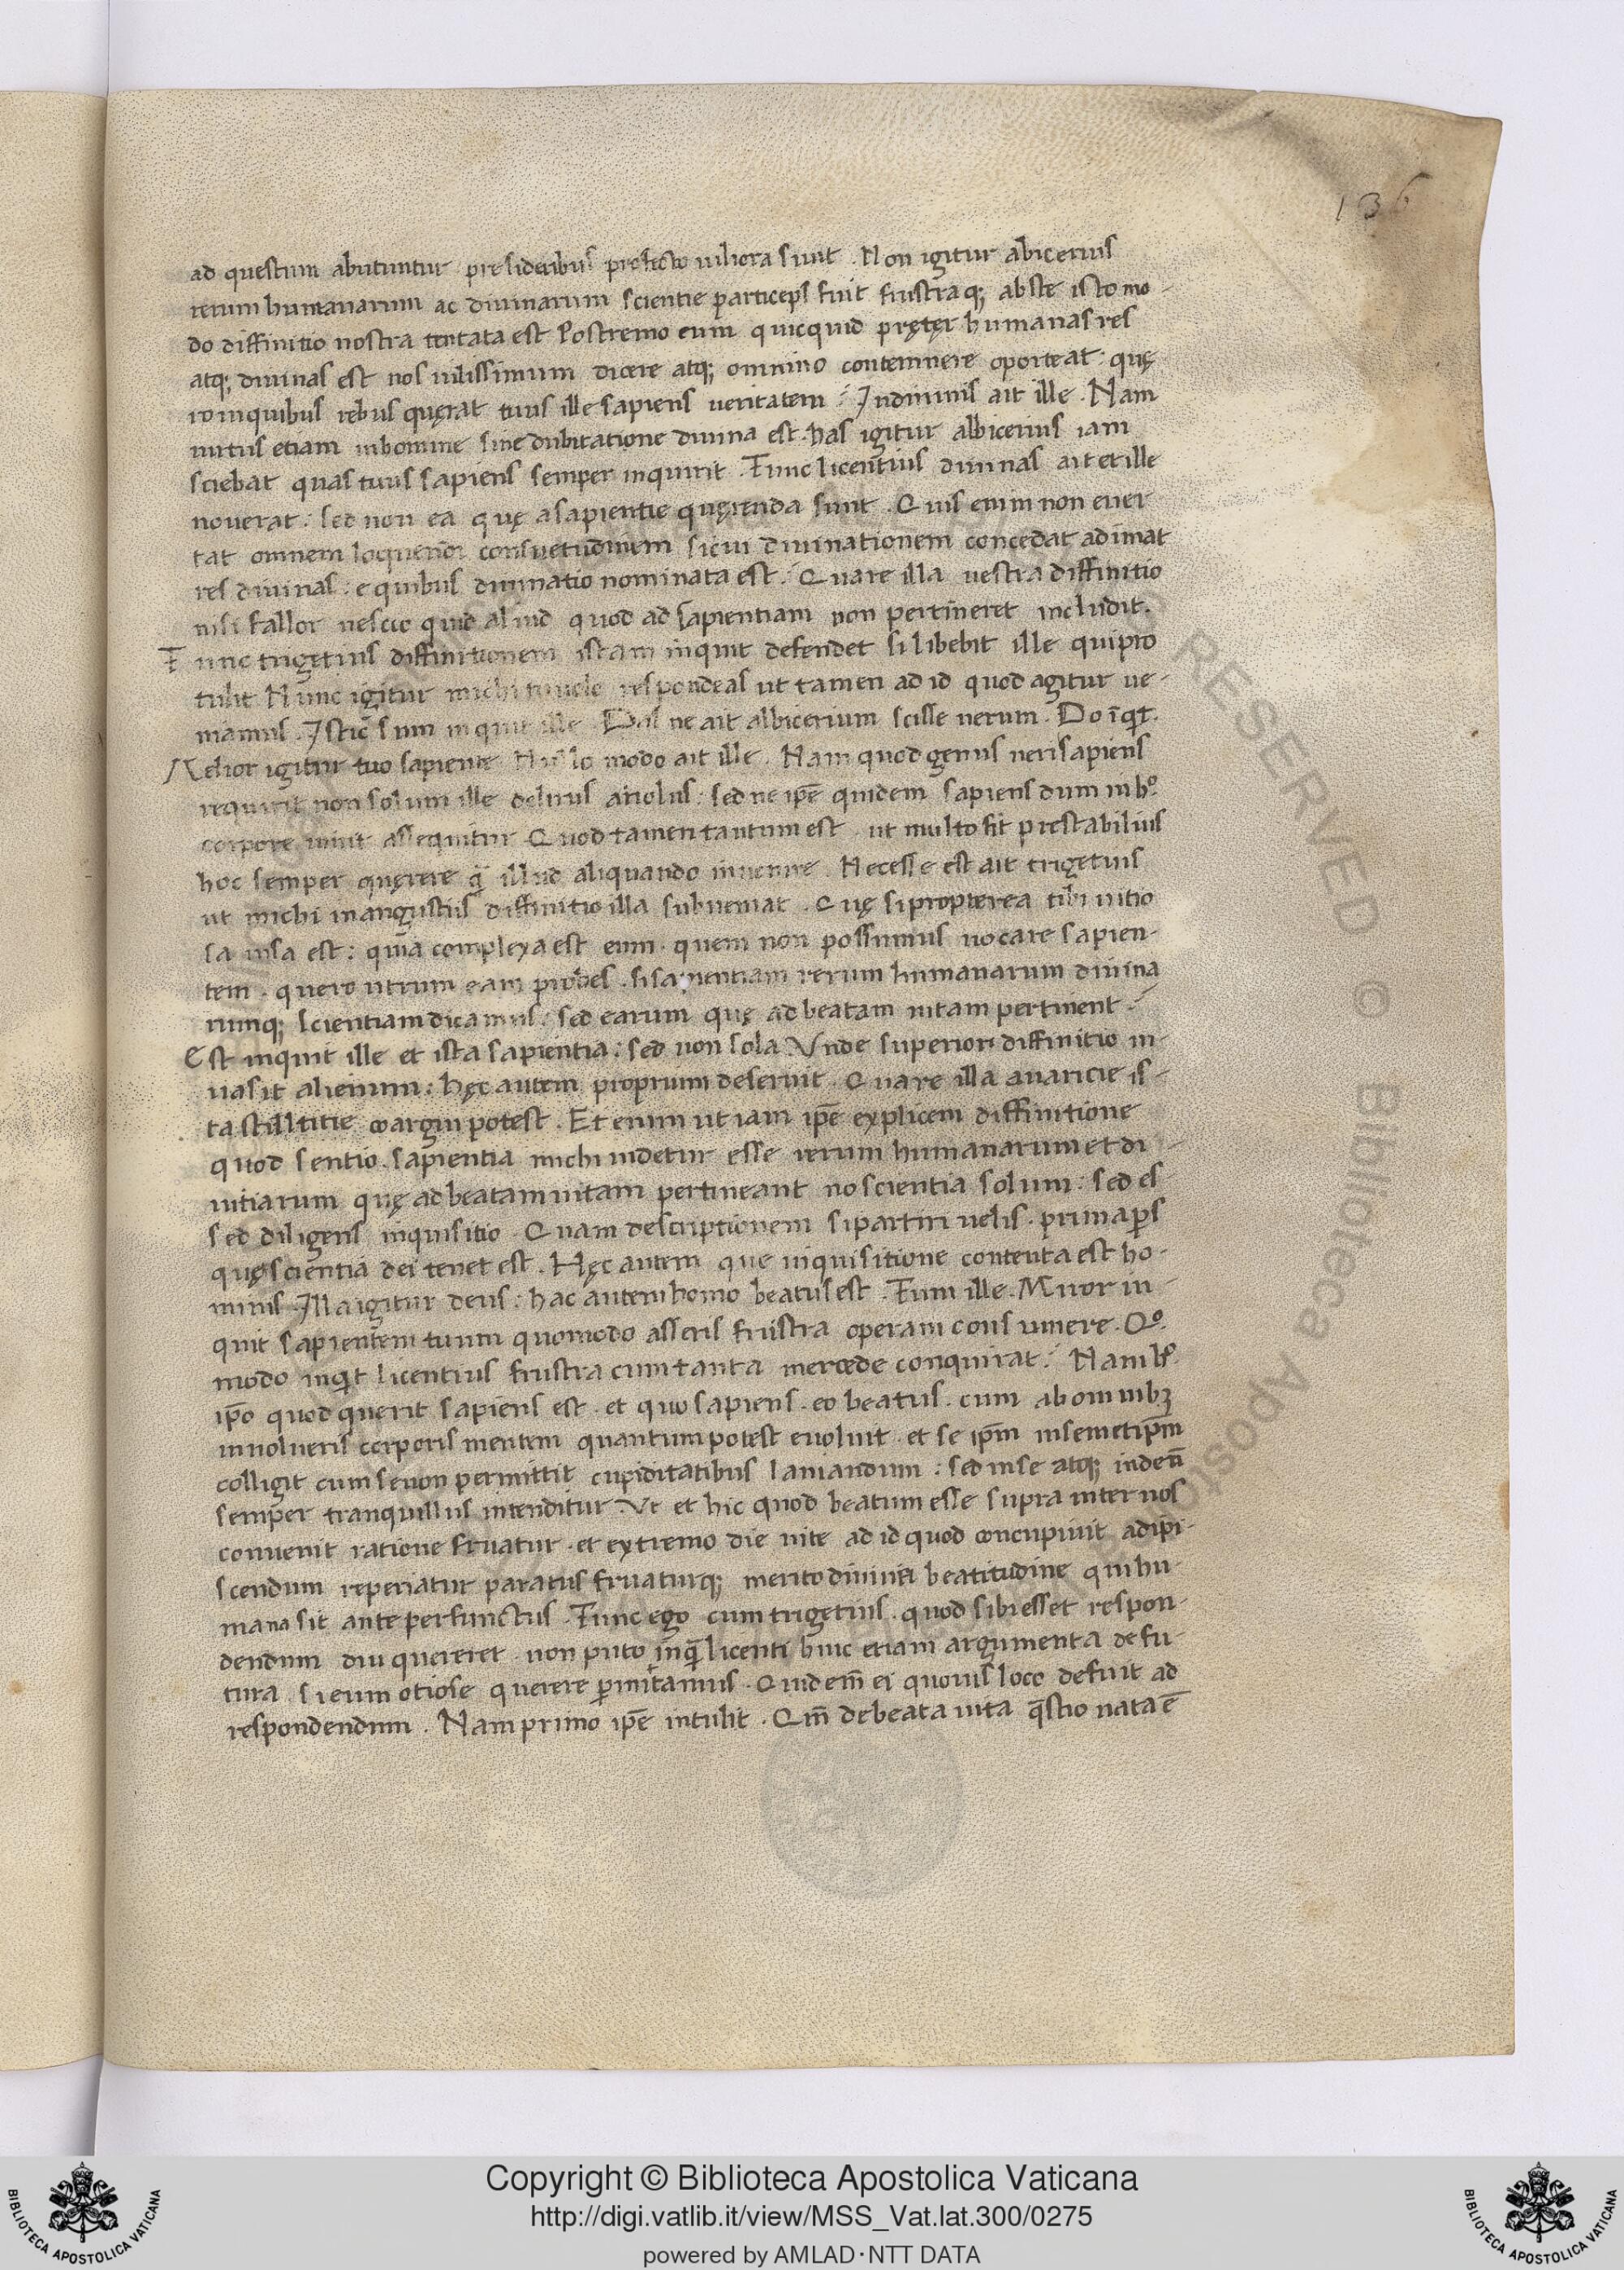 136
ad questum abutuntur presideribus profecto uiliora sunt. Non igitur abicerius
rerum humanarum ac diuinarum scientie particeps fuit frustraq; abste isto mo-
do diffinitio nostra tentata est Postremo cum quicquid pręter humanas res
atq; diuinas est nos uilissimum dicere atq; omnino contemnere oporteat: quę
ro inquibus rebus quęrat tuus ille sapiens ueritatem? Indiuinis ait ille. Nam
uirtus etiam inhomine sine dubitatione diuina est. has igitur albicerius iam
sciebat quas tuus sapiens semper inquirit. Tunc licentius diuinas ait et ille
nouerat: sed non ea quę asapientie quęrenda sunt. Quis enim non euer
tat omnem loquendi consuetudinem sicui diuinationem concedat adimat
res diuinas: e quibus diuinatio nominata est. Quare illa uestra diffinitio
nisi fallor nescio quid aliud quod ad sapientiam non pertineret includit.
Tunc trigetius diffinitionem istam inquit defendet si libebit ille quipro
tulit Nunc igitur michi tu uele respondeas ut tamen ad id quod agitur ue-
niamus. Istic sum inquit ille. Das ne ait albicerium scisse uerum. Do īqt.
Melior igitur tuo sapiente Nullo modo ait ille. Nam quod genus ueri sapiens
requirit non solum ille delirus ariolus: sed ne ipē quidem sapiens dum in hº
corpore uiuit assequitur Quod tamen tantum est ut multo sit prestabilius
hoc semper quęrere q̄ illud aliquando inuenire. Necesse est ait trigetius
ut michi inangustiis diffinitio illa subueniat. Quę si propterea tibi uitio
sa uisa est: quia complexa est eum. quem non possumus uocare sapien-
tem. quero utrum eam probes. si sapientiam rerum humanarum diuina
rumq; scientiam dicamus: sed earum quę ad beatam uitam pertinent?
Est inquit ille et ista sapientia: sed non sola Vnde superior diffinitio in-
uasit alienum: hęc autem proprium deseruit. Quare illa auaricie is-
ta stultitie coargui potest. Et enim ut iam ipē explicem diffinitione
quod sentio. sapientia michi uidetur esse rerum humanarum et di-
uitiarum quę ad beatam uitam pertineant no scientia solum: sed es
sed diligens inquisitio. Quam descriptionem si partiri uelis. prima p̄s
quę scientiā dei tenet est. Hęc autem que inquisitione contenta est ho-
minis. Illa igitur deus: hac autem homo beatus est. Tum ille. Miror in-
quit sapientem tuum quomodo asseris frustra operam consumere. Qº
modo inqt licentius frustra cum tanta mercede conquirat? Nam hº
ip̄o quod querit sapiens est. et quo sapiens. eo beatus. cum ab omnibꝫ
inuolucris corporis mentem quantum potest euoluit. et se ip̄m insemetip̄m
colligit cum se non permittit cupiditatibus laniandum: sed inse atq; indeū
semper tranquillus intenditur. Vt et hic quod beatum esse supra inter nos
conuenit ratione fruatur. et extremo die uite ad id quod concupiuit adipi-
scendum reperiatur paratus fruaturq; merito diuina beatitudine qui hu-
mana sit ante perfunctus. Tunc ego cum trigetius. quod sibi esset respon-
dendum diu quereret. non puto inq̄ licenti huic etiam argumenta defu-
tura si eum otiose querere p̄mittamus. Quid em̄ ei quouis loco defuit ad
respondendum. Nam primo ipē intulit. Qm̄ debeata uita q̄stio nata ē
Copyright © Biblioteca Apostolica Vaticana
http://digi.vatlib.it/view/MSS_Vat.lat.300/0275
powered by AMLAD·NTT DATA